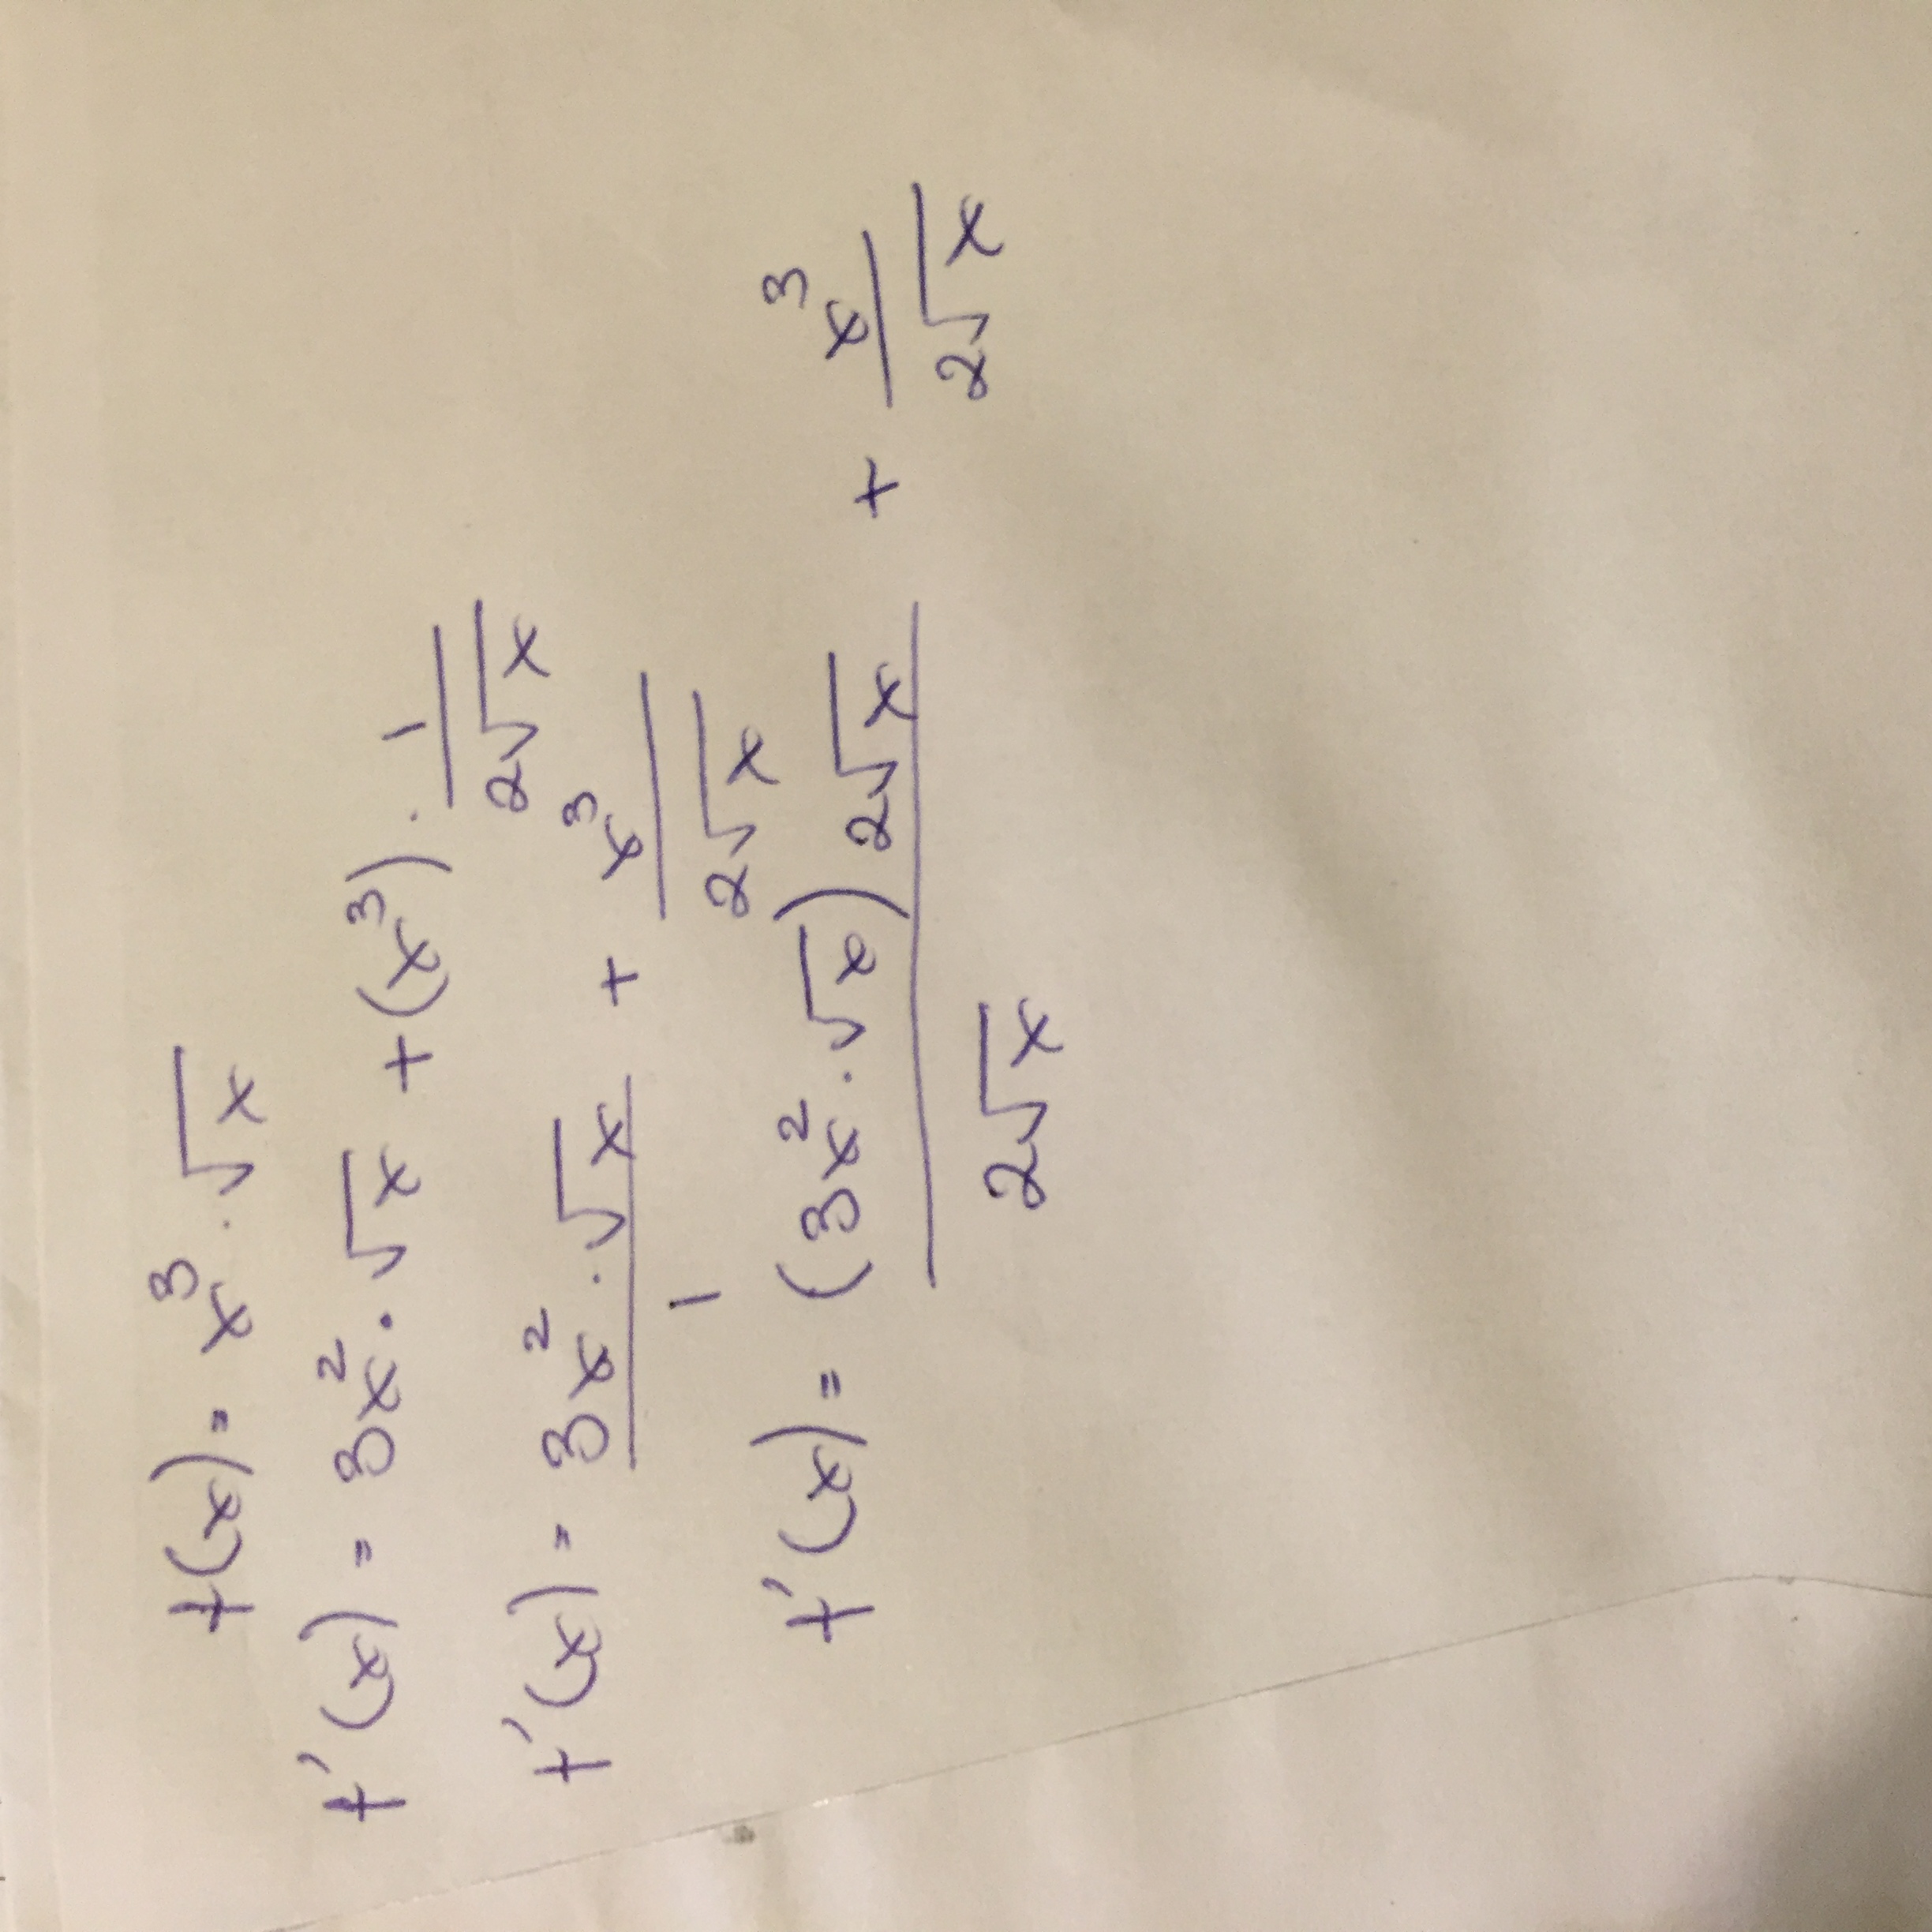 f(x) = x³ · √x
f'(x) = 3x² · √x + (x³) · 1/(2√x)
f'(x) = (3x² · √x)/1 + x³/(2√x)
f'(x) = ((3x² · √x) 2√x)/(2√x) + x³/(2√x)